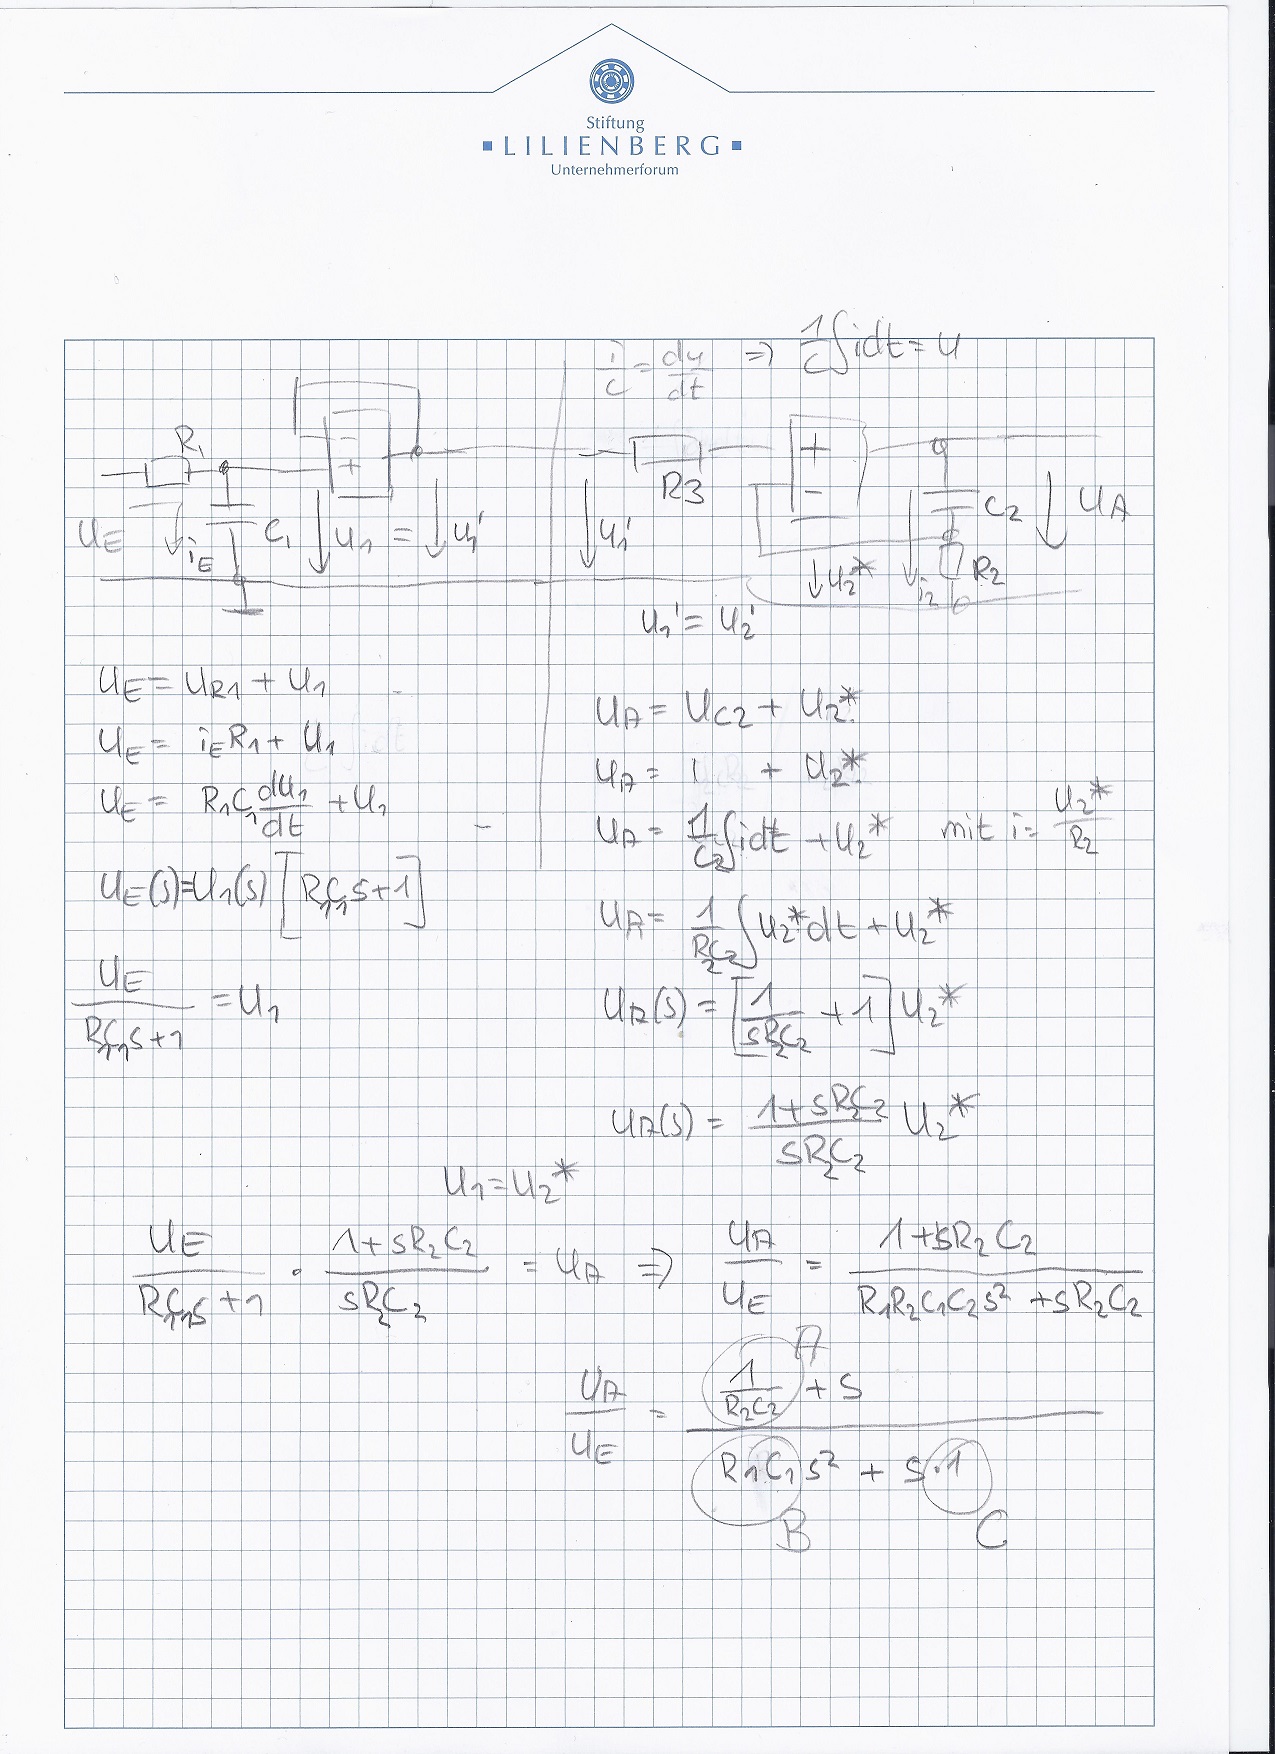 Stiftung
LILIENBERG
Unternehmerforum
i/C = du/dt ⇒ 1/C ∫idt = U
R1
UE
iE
C1
U1 = U1'
U1'
R3
C2
UA
U2*
i2
R2
U1' = U2'
UE = UR1 + U1
UE = iE R1 + U1
UE = R1C1 du1/dt + U1
UE(s) = U1(s) [R1C1s+1]
UE / (R1C1s+1) = U1
UA = UC2 + U2*
UA = + U2*
UA = 1/C2 ∫idt + U2* mit i = U2*/R2
UA = 1/(R2C2) ∫U2*dt + U2*
UA(s) = [1/(sR2C2) + 1] U2*
UA(s) = (1+sR2C2)/(sR2C2) U2*
U1 = U2*
UE/(R1C1s+1) · (1+sR2C2)/(sR2C2) = UA ⇒ UA/UE = (1+sR2C2)/(R1R2C1C2s² + sR2C2)
UA/UE = (1/(R2C2) + s)/(R1C1s² + s·1)
A
B
C